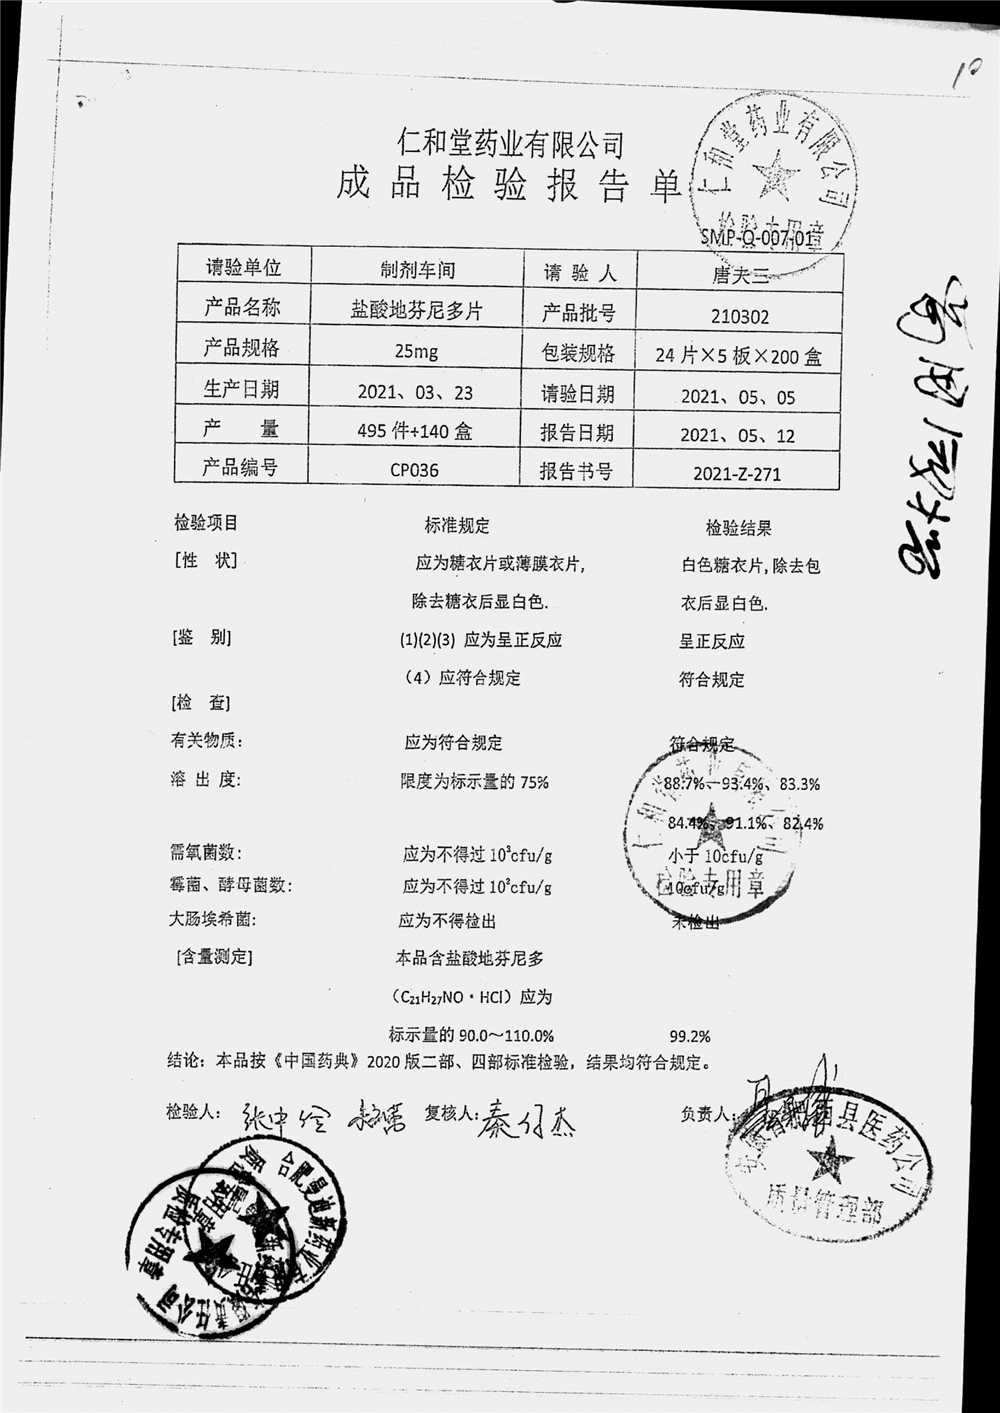 10
仁和堂药业有限公司
成品检验报告单
仁和堂药业有限公司
检验专用章
SMP-Q-007-01
请验单位 制剂车间 请 验 人 唐夫三
产品名称 盐酸地芬尼多片 产品批号 210302
产品规格 25mg 包装规格 24片×5板×200盒
生产日期 2021、03、23 请验日期 2021、05、05
产 量 495件+140盒 报告日期 2021、05、12
产品编号 CP036 报告书号 2021-Z-271
检验项目 标准规定 检验结果
[性 状] 应为糖衣片或薄膜衣片, 白色糖衣片,除去包
除去糖衣后显白色. 衣后显白色.
[鉴 别] (1)(2)(3) 应为呈正反应 呈正反应
（4）应符合规定 符合规定
[检 查]
有关物质: 应为符合规定 符合规定
溶 出 度: 限度为标示量的 75% 88.7%、93.4%、83.3%
84.4%、91.1%、82.4%
需氧菌数: 应为不得过 10³cfu/g 小于 10cfu/g
霉菌、酵母菌数: 应为不得过 10²cfu/g 10cfu/g
大肠埃希菌: 应为不得检出 未检出
检验专用章
[含量测定] 本品含盐酸地芬尼多
（C₂₁H₂₇NO·HCl）应为
标示量的 90.0～110.0% 99.2%
结论：本品按《中国药典》2020 版二部、四部标准检验，结果均符合规定。
检验人: 复核人: 负责人:
县医药公司
质量管理部
合肥曼迪新药业有
质检专用章
责任公司